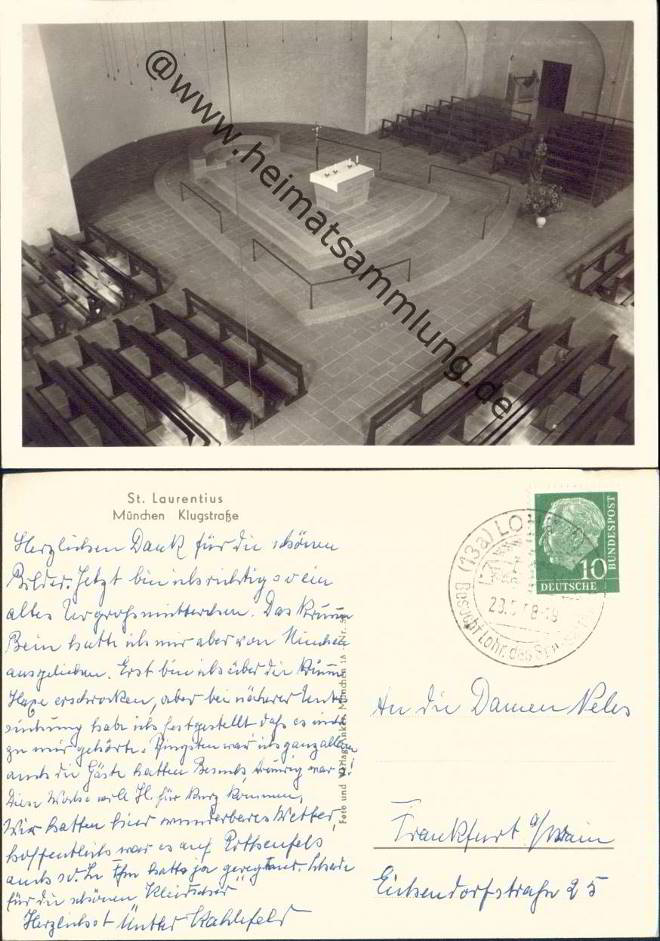 @www.heimatsammlung.de
St. Laurentius
München Klugstraße
Herzlichen Dank für die schönen
Bilder. Jetzt bin ich richtig so ein
altes Urgroßmütterchen. Das krumme
Bein hatte ich mir aber von
ausgeliehen. Erst bin ich über die krumme
erschrocken, aber bei näherer Unter
suchung habe ich festgestellt daß es nicht
zu mir gehörte. Pfingsten war ich ganz allein
auch die Gäste hatten Besuch, traurig war
Diese Woche will H. für kurz kommen,
Wir hatten hier wunderbares Wetter,
hoffentlich war es auf Rothenfels
auch so. In hatts ja geregnet. Schade
für die schönen "Kleidscher"
Herzlichst
Foto und Verlag München
(13a) LOHR
Besucht Lohr, das
DEUTSCHE
BUNDESPOST
10
An die Damen Neles
Frankfurt a/Main
Eichendorfstraße 25